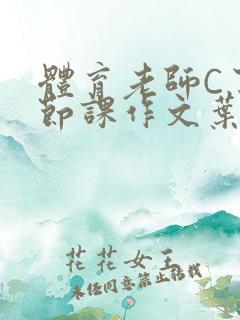 體育老師C
節課作文葉
花花女王
未經同意禁止轉載